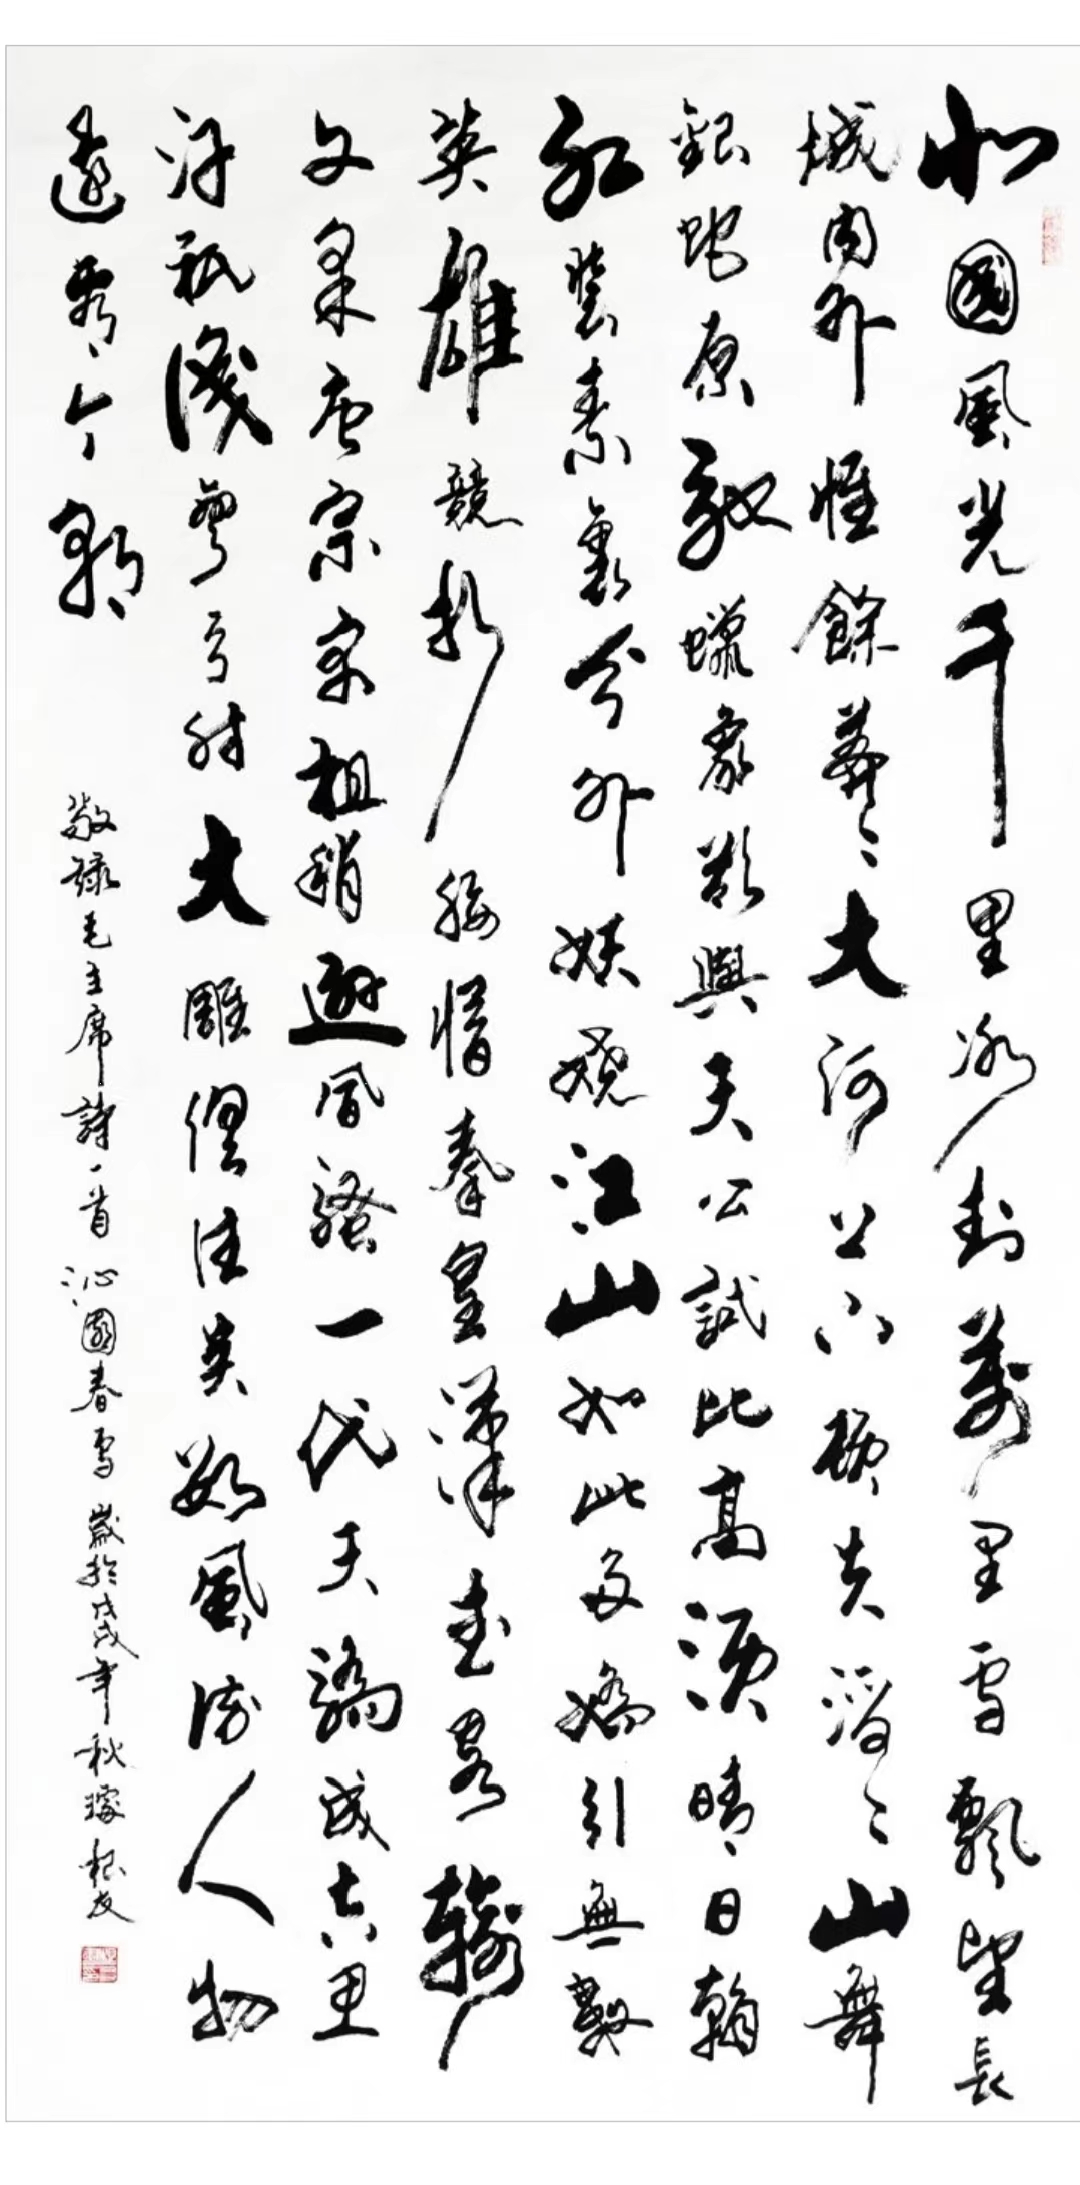 北國風光千里冰封萬里雪飄望長
城內外惟餘莽〻大河上下頓失滔〻山舞
銀蛇原馳蠟象欲與天公試比高須晴日看
紅裝素裹分外妖嬈江山如此多嬌引無數
英雄競折腰惜秦皇漢武略輸
文采唐宗宋祖稍遜風騷一代天驕成吉思
汗祇識彎弓射大雕俱往矣數風流人物
還看今朝
敬録毛主席詩一首沁園春雪歲於戊戌年秋璩根友